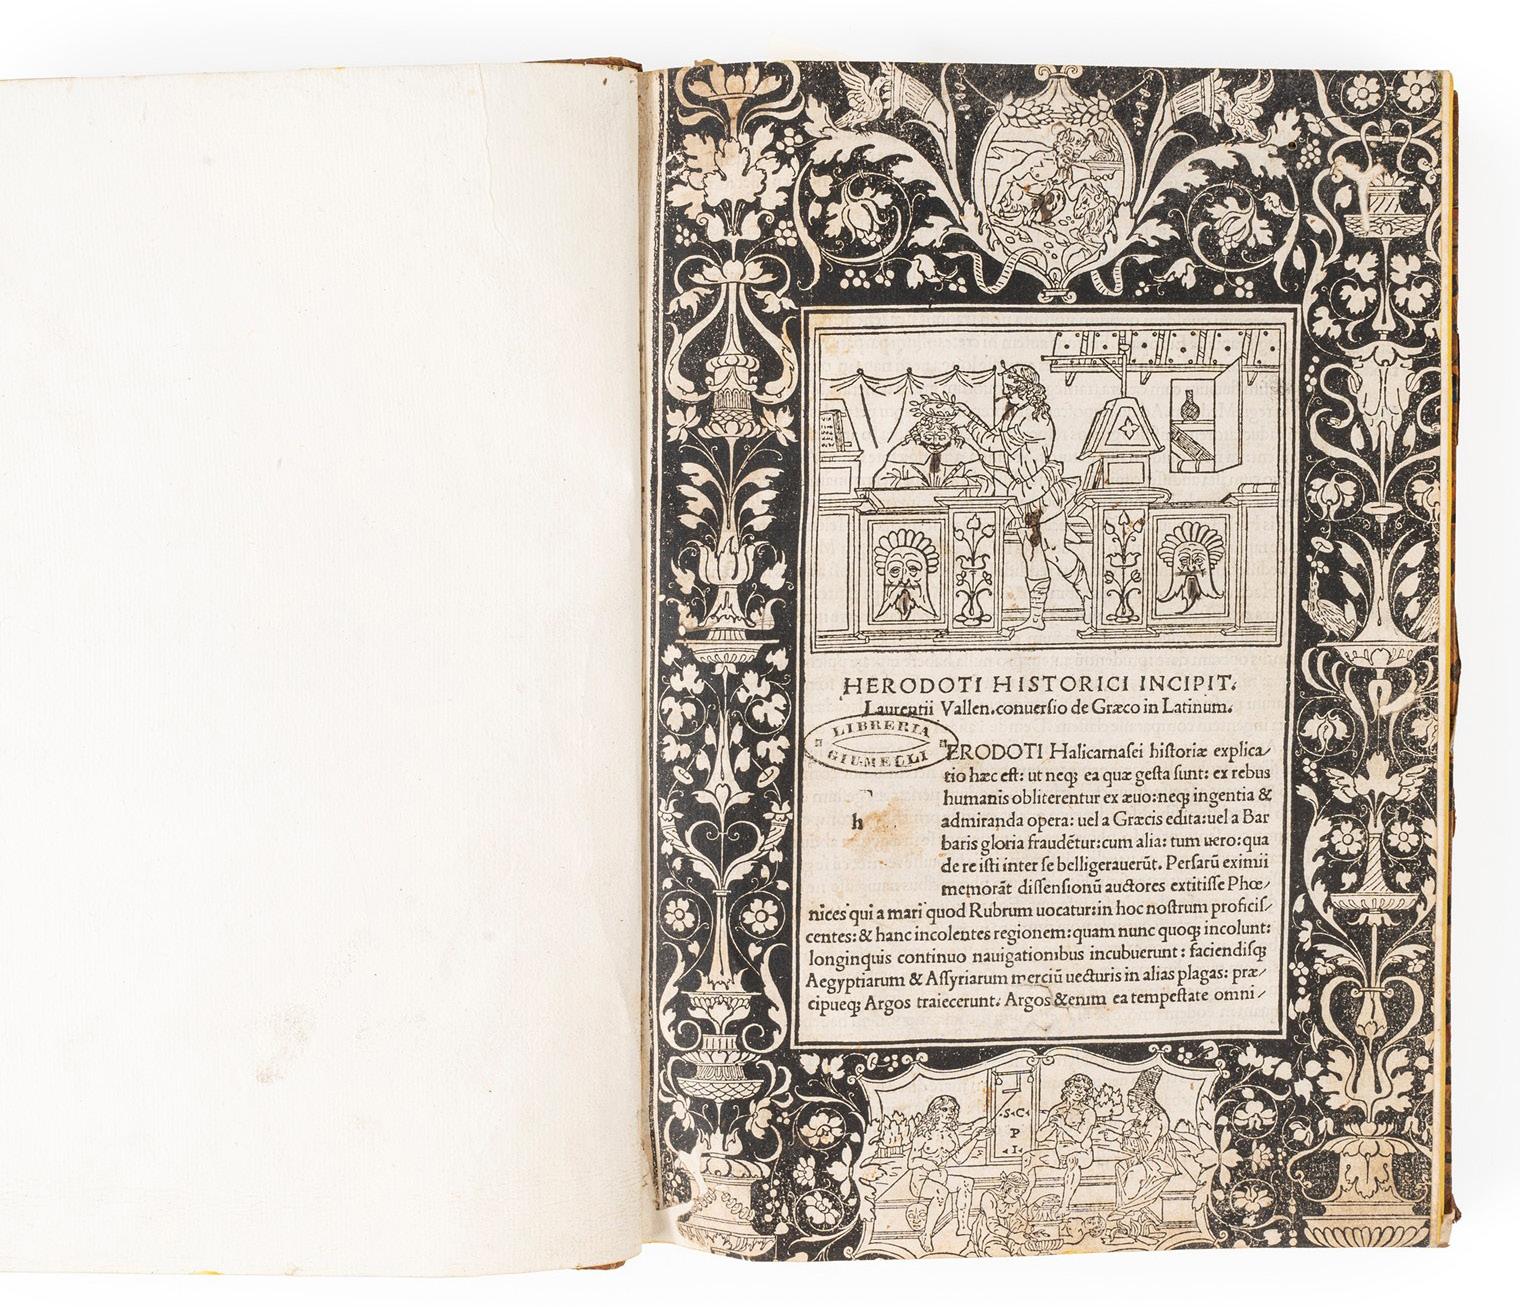 HERODOTI HISTORICI INCIPIT.
Laurentii Vallen. conuersio de Græco in Latinum.
LIBRERIA
GIUMELLI
h
ERODOTI Halicarnasei historiæ explica/
tio hæc est: ut neqꝫ ea quæ gesta sunt: ex rebus
humanis obliterentur ex æuo: neqꝫ ingentia &
admiranda opera: uel a Græcis edita: uel a Bar
baris gloria fraudẽtur: cum alia: tum uero: qua
de re isti inter se belligerauerũt. Persarũ eximii
memorãt dissensionũ auctores extitisse Phœ/
nices qui a mari quod Rubrum uocatur: in hoc nostrum proficis/
centes: & hanc incolentes regionem: quam nunc quoqꝫ incolunt:
longinquis continuo nauigationibus incubuerunt: faciendisqꝫ
Aegyptiarum & Assyriarum merciũ uecturis in alias plagas: præ/
cipueqꝫ Argos traiecerunt. Argos &enim ea tempestate omni/
S·C·
P
I